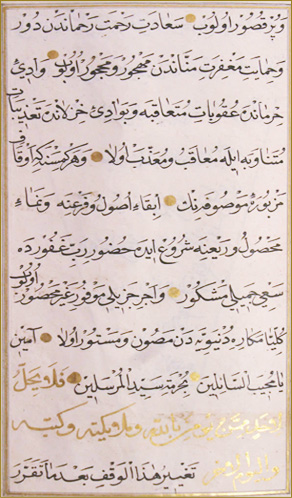 و پر قصور اولوب سعادت رحمت رحماندن دور
و حمایت مغفرت مناندن مهجور و محجور اولوب وادئ
حرماندن عقوبات متعاقبه و بوادئ خزلاندن تعذیبات
متناوبه ایله معاقب و معذب اولا و هر کمسنه که اوقاف
مزبوره موصوفه نك ابقاء اصول و فرعنه و نماء
محصول و ریعنه شروع ایده حضور رب غفورده
سعی جمیلی مشکور و اجر جزیلی موفور غیر محصور اولوب
کلیا مکاره دنیویه دن مصون و مستور اولا آمین
یا مجیب السائلین بحرمة سید المرسلین فلا یحل
یؤمن بالله و ملائکته و کتبه
و الیوم الآخر تغییر هذا الوقف بعد ما تقرر